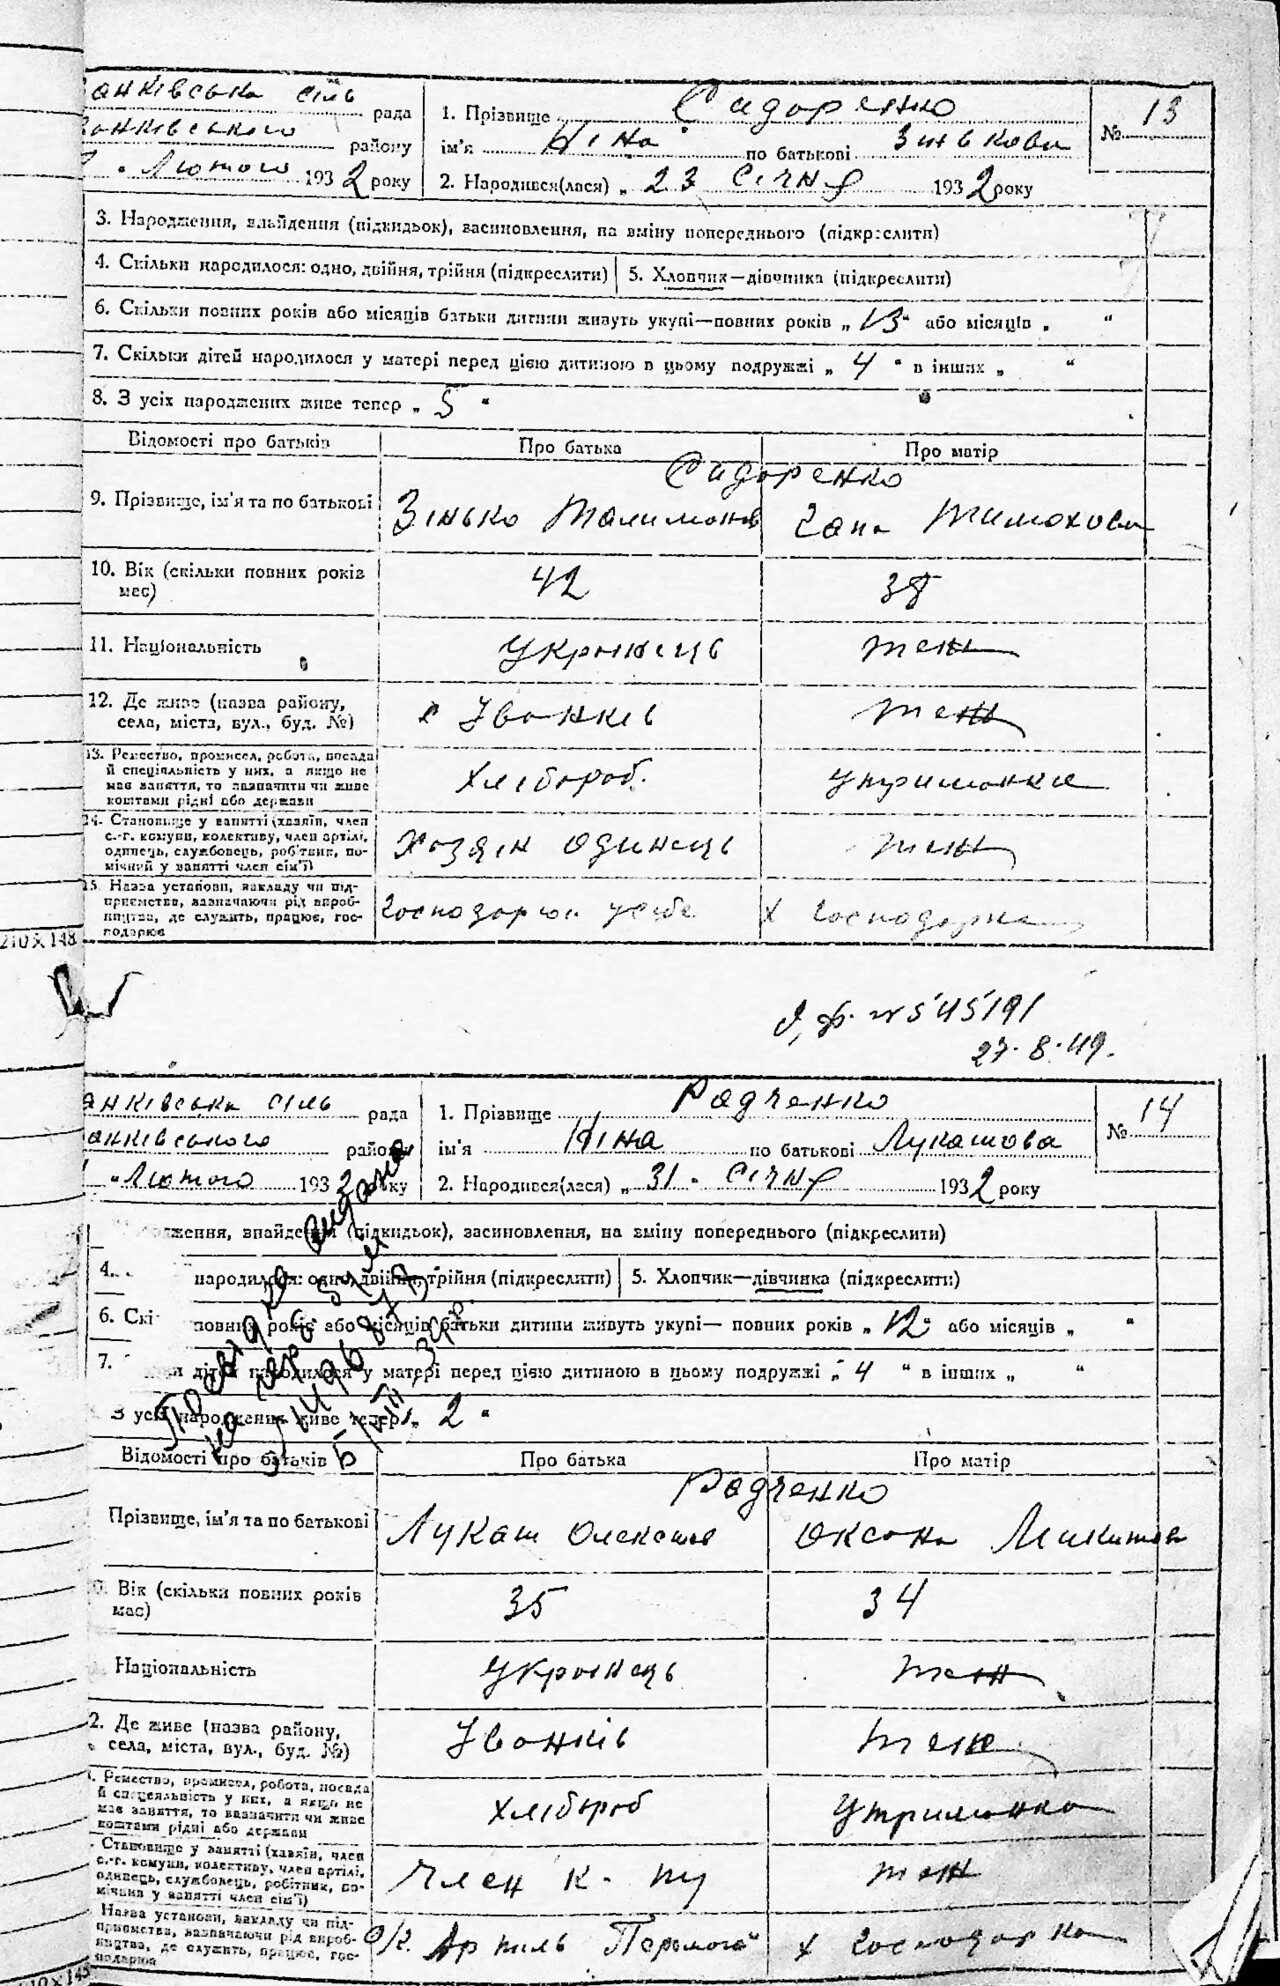 анківська сіль рада
ванківського району
Лютого 1932 року
1. Прізвище Сидоренко
ім'я Ніна по батькові Зінькова
2. Народився(лася) „ 23 Січня 1932 року
№ 13
3. Народження, знайдення (підкидьок), засиновлення, на зміну попереднього (підкреслити)
4. Скільки народилося: одно, двійня, трійня (підкреслити)
5. Хлопчик—дівчинка (підкреслити)
6. Скільки повних років або місяців батьки дитини живуть укупі—повних років „ 13 “ або місяців „ “
7. Скільки дітей народилося у матері перед цією дитиною в цьому подружжі „ 4 “ в інших „ “
8. З усіх народжених живе тепер „ 5 “
Відомості про батьків
Про батька
Про матір
Сидоренко
9. Прізвище, ім'я та по батькові
Зінько
Гана Тимохова
10. Вік (скільки повних років має)
42
38
11. Національність
Українець
теж
12. Де живе (назва району,
села, міста, вул., буд. №)
с Іванків
теж
13. Ремество, промисел, робота, посада
й спеціальність у них, а якщо не
має заняття, то зазначити чи живе
коштами рідні або держави
Хлібороб.
утриманка
14. Становище у занятті (хазяїн, член
с.-г. комуни, колективу, член артілі,
одинець, службовець, робітник, по-
мічний у занятті член сім'ї)
Хозяін одинець
теж
15. Назва установи, закладу чи під-
приємства, зазначаючи рід вироб-
ництва, де служить, працює, гос-
подарює
усебе
х господарка
210 X 148
№ 545191
27. 8. 49.
анківська сіль рада
анківського району
„Лютого 1932 року
1. Прізвище Радченко
ім'я Ніна по батькові Лукашова
2. Народився(лася) „ 31 „ Січня 1932 року
№ 14
ження, знайдення (підкидьок), засиновлення, на зміну попереднього (підкреслити)
4. народилося: одно, двійня, трійня (підкреслити)
5. Хлопчик—дівчинка (підкреслити)
6. Скі повних років або місяців батьки дитини живуть укупі— повних років „ 12 “ або місяців „ “
7. дітей народилося у матері перед цією дитиною в цьому подружжі „ 4 “ в інших „ “
З усіх народжених живе тепер „ 2 “
Посвідка видана
Відомості про батьків
Про батька
Про матір
Радченко
Прізвище, ім'я та по батькові
Лукаш
Оксана Микитова
Вік (скільки повних років має)
35
34
Національність
Українець
теж
2. Де живе (назва району,
села, міста, вул., буд. №)
Іванків
теж
Ремество, промисел, робота, посада
й спеціяльність у них, а якщо не
має заняття, то зазначити чи живе
коштами рідні або держави
Хлібороб
утриманка
Становище у занятті (хазяїн, член
с.-г. комуни, колективу, член артілі,
одинець, службовець, робітник, по-
мічний у занятті член сім'ї)
Член к.
теж
Назва установи, закладу чи під-
приємства, зазначаючи рід вироб-
ництва, де служить, працює, гос-
подарює
Артиль Перемога"
х господарка